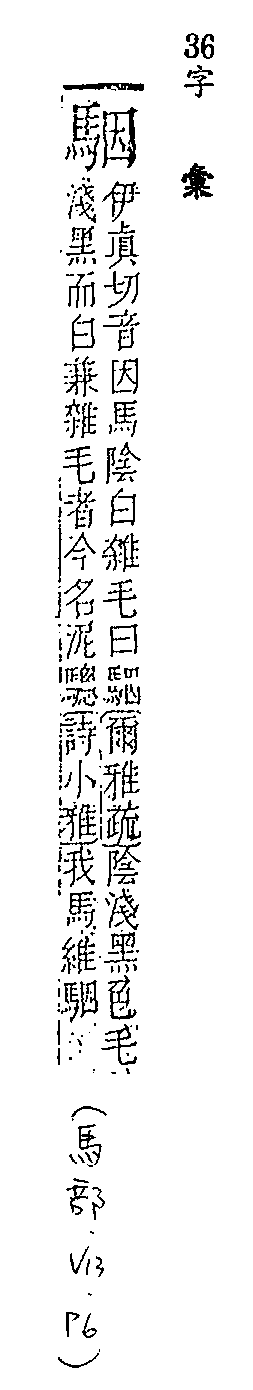 36
字
彙
駰
伊真切音因馬陰白雜毛曰駰爾雅疏陰淺黑色毛
淺黑而白兼雜毛者今名泥驄詩小雅我馬維駰
(馬部.V13.P6)